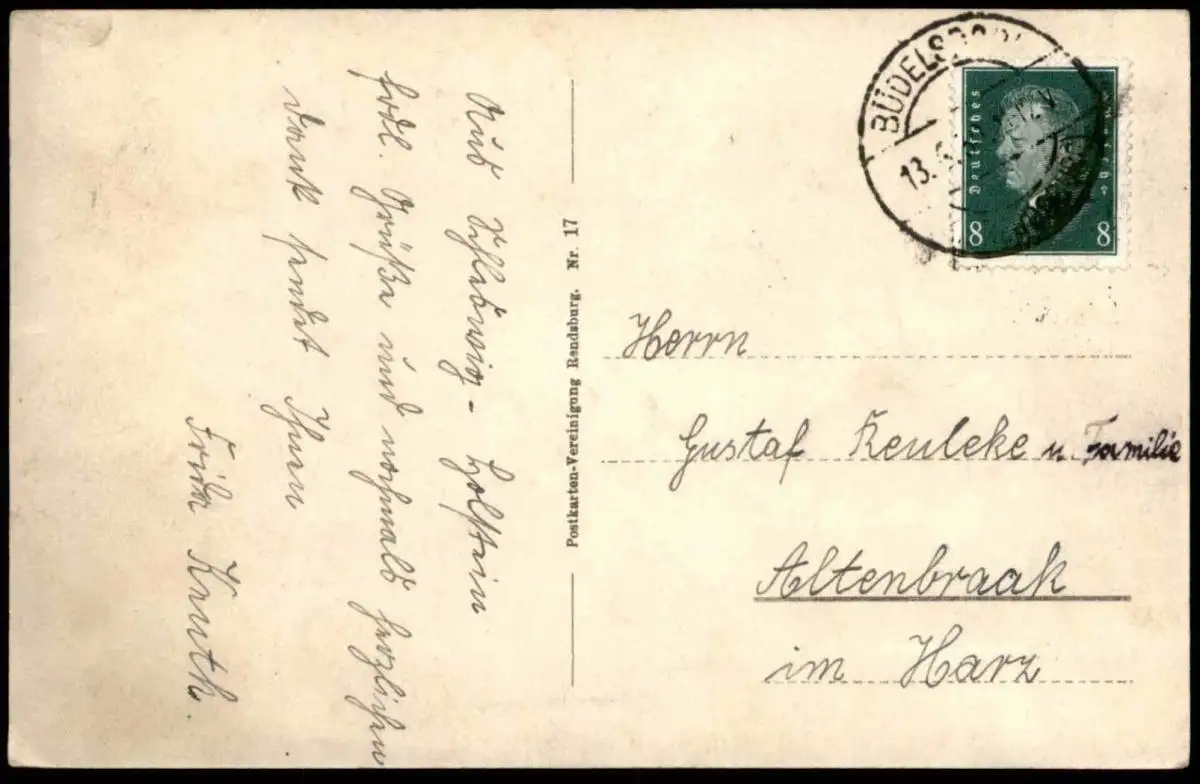 Aus Schleswig-Holstein
frdl. Grüße und nochmals herzlichen
Dank sendet Ihnen
Frida Knuth.
Postkarten-Vereinigung Rendsburg. Nr. 17
BÜDELSDORF
13.
Deutsches
8 8
Herrn
Gustaf Keuleke u. Familie
Altenbraak
im Harz